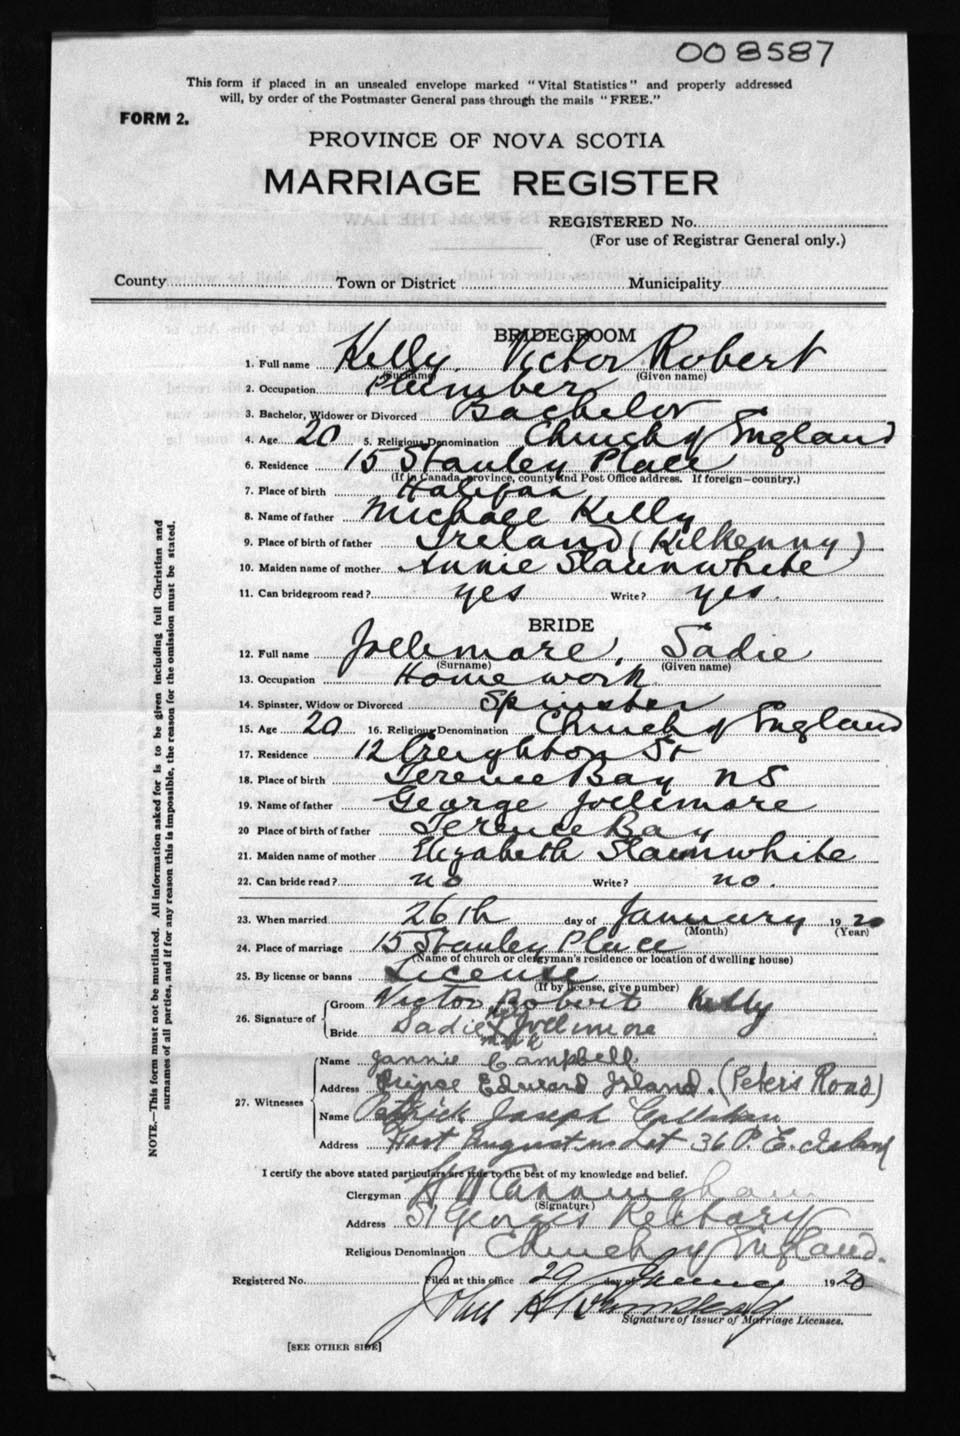 008587
This form if placed in an unsealed envelope marked "Vital Statistics" and properly addressed
will, by order of the Postmaster General pass through the mails "FREE."
FORM 2.
PROVINCE OF NOVA SCOTIA
MARRIAGE REGISTER
REGISTERED No.
(For use of Registrar General only.)
County Town or District Municipality
BRIDEGROOM
1. Full name Kelly, Victor Robert
(Surname) (Given name)
2. Occupation Plumber
3. Bachelor, Widower or Divorced Bachelor
4. Age 20 5. Religious Denomination Church of England
6. Residence 15 Stanley Place
(If in Canada, province, county and Post Office address. If foreign—country.)
7. Place of birth Halifax
8. Name of father Michael Kelly
9. Place of birth of father Ireland (Kilkenny)
10. Maiden name of mother Annie Slaunwhite
11. Can bridegroom read? yes Write? yes.
BRIDE
12. Full name Jollimore, Sadie
(Surname) (Given name)
13. Occupation Homework
14. Spinster, Widow or Divorced Spinster
15. Age 20 16. Religious Denomination Church of England
17. Residence 12 Creighton St
18. Place of birth Terence Bay NS
19. Name of father George Jollimore
20 Place of birth of father Terence Bay
21. Maiden name of mother Elizabeth Slaunwhite
22. Can bride read? no Write? no.
23. When married 26th day of January 1920
(Month) (Year)
24. Place of marriage 15 Stanley Place
(Name of church or clergyman's residence or location of dwelling house)
25. By license or banns License
(If by license, give number)
26. Signature of Groom Victor Robert Kelly
Bride Sadie X Jollimore
mark
27. Witnesses Name Jannie Campbell
Address Prinse Edward Island. (Peter's Road)
Name Patrick Joseph
Address Lot 36 P. E. Island
I certify the above stated particulars are true to the best of my knowledge and belief.
Clergyman Cunningham
(Signature)
Address St Georges Rectory
Religious Denomination Church of England.
Registered No. Filed at this office 29 day of January 1920
John
Signature of Issuer of Marriage Licenses.
[SEE OTHER SIDE]
NOTE.—This form must not be mutilated. All information asked for is to be given including full Christian and
surnames of all parties, and if for any reason this is impossible, the reason for the omission must be stated.